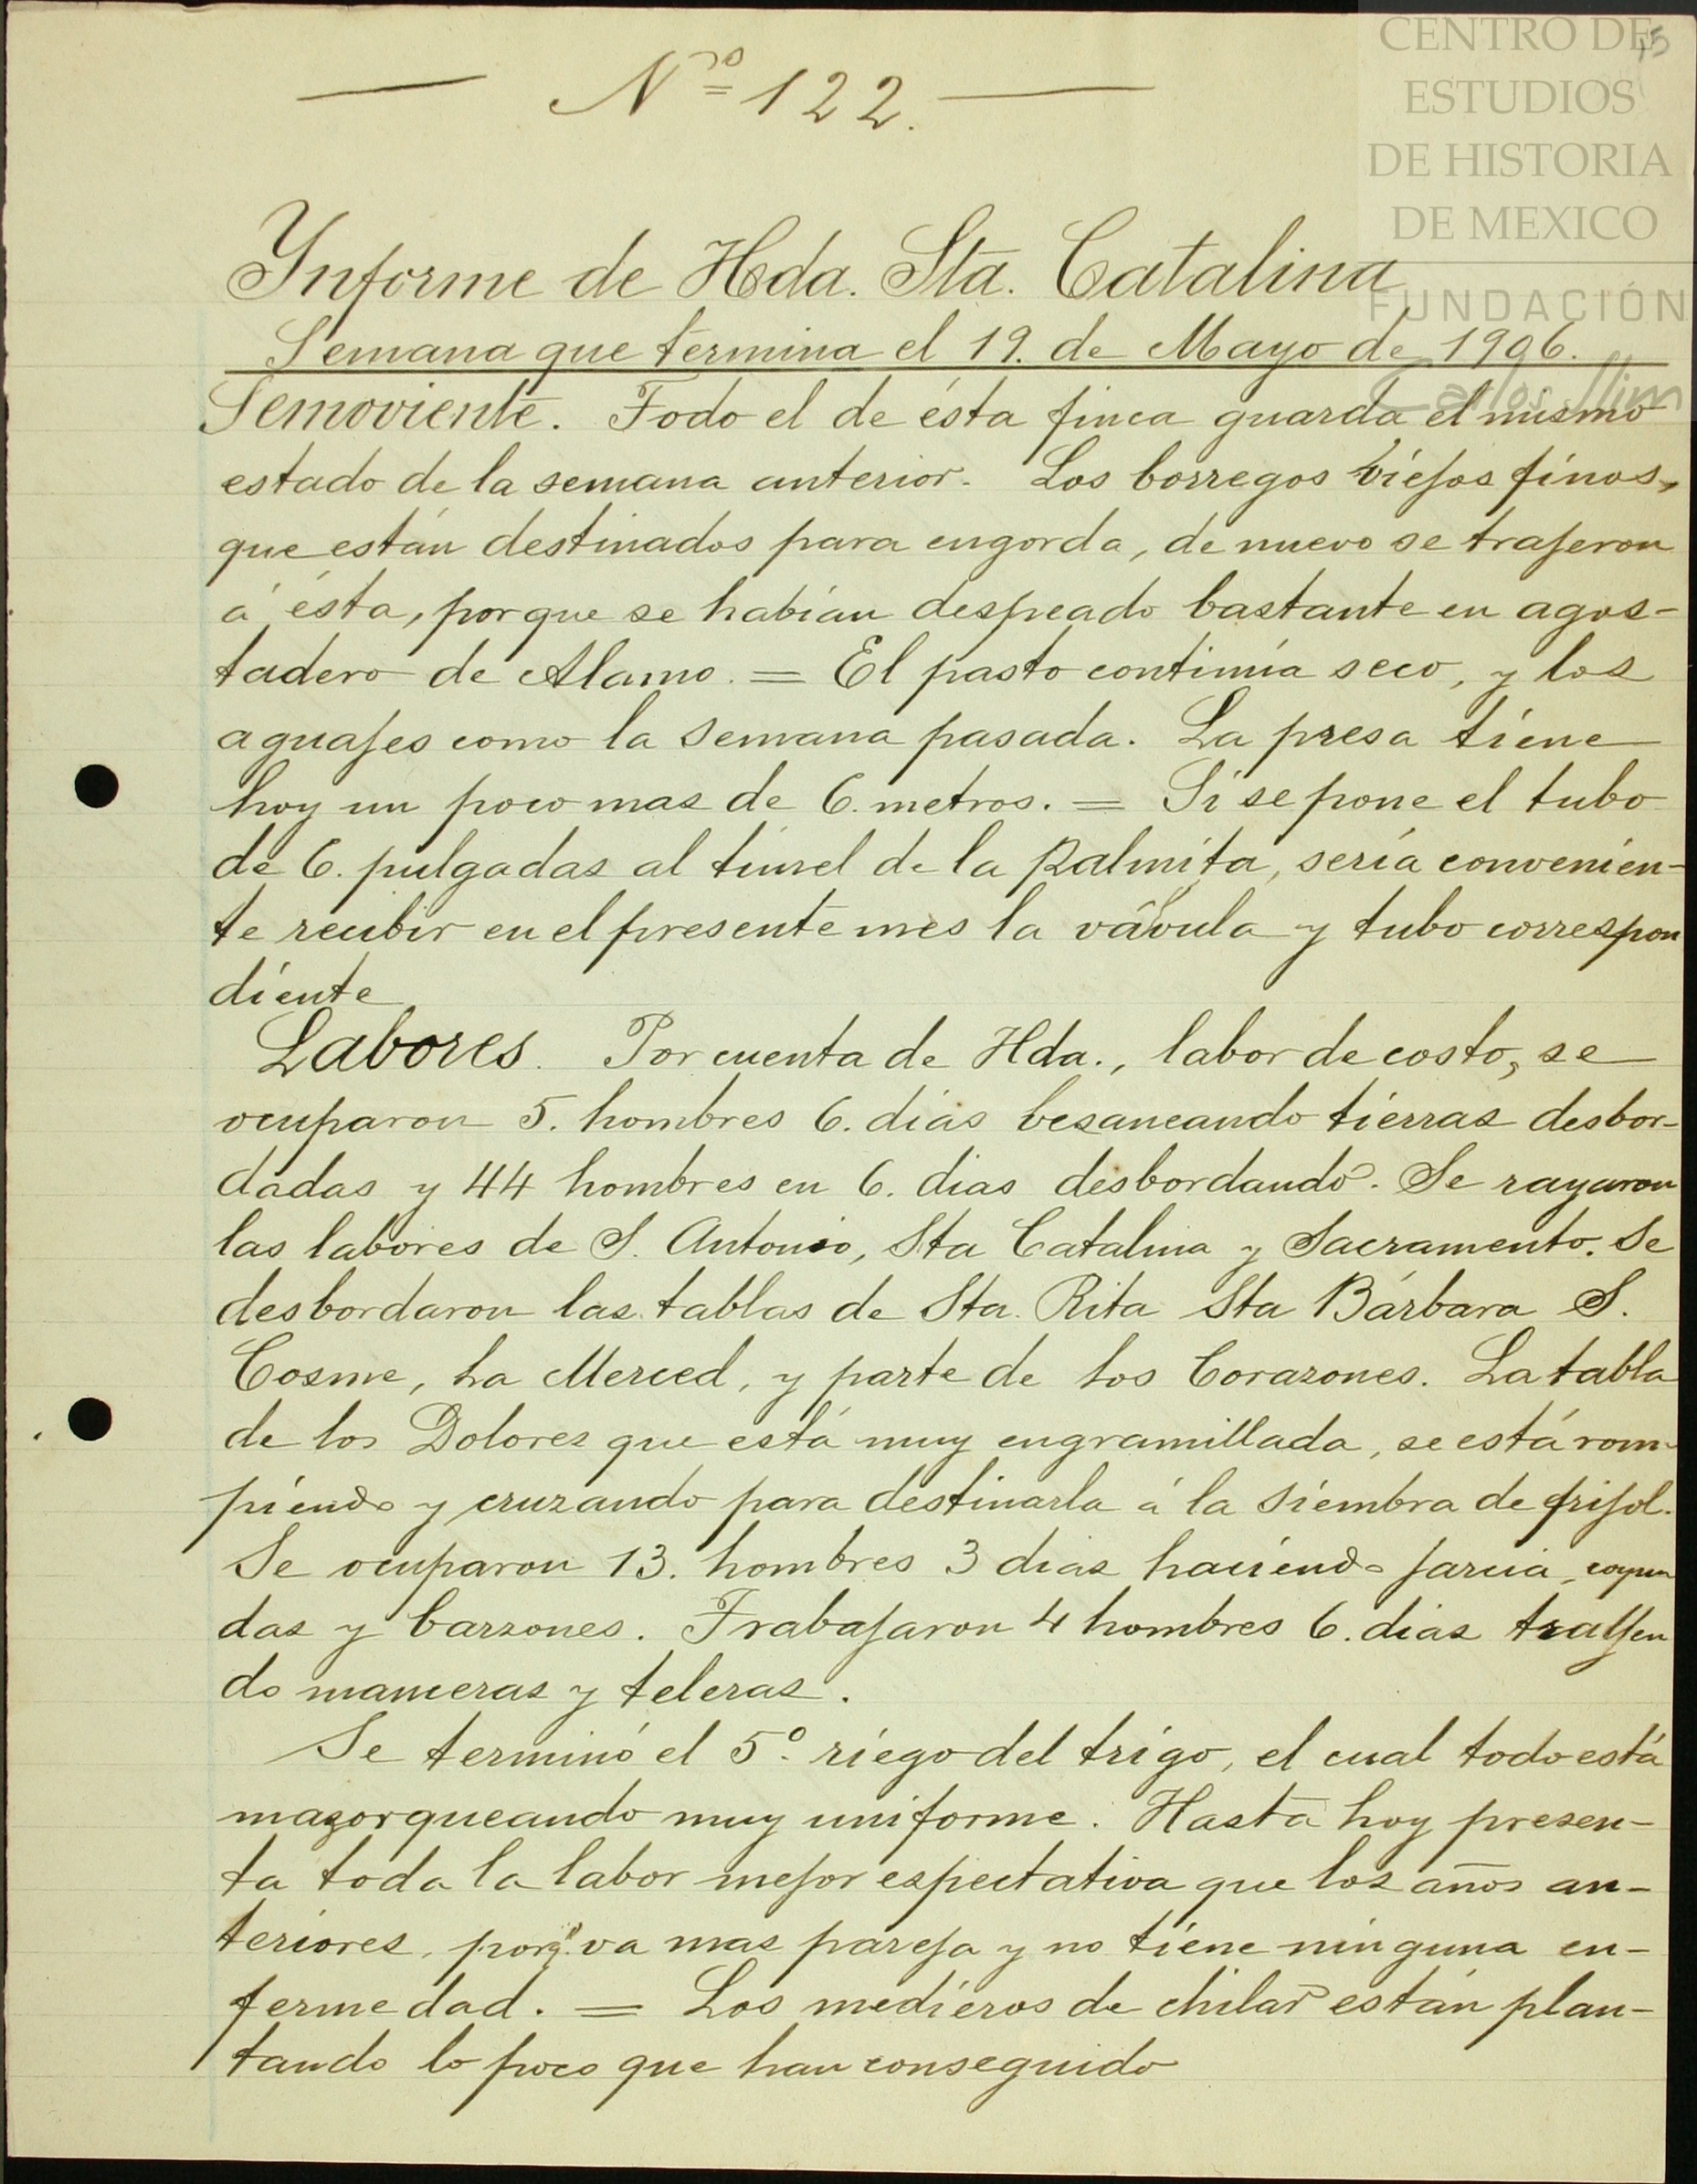 CENTRO DE
ESTUDIOS
DE HISTORIA
DE MEXICO
FUNDACIÓN
Carlos Slim
— Nº 122. —
Ynforme de Hda. Sta. Catalina
Semana que termina el 19. de Mayo de 1906.
Semoviente. Todo el de ésta finca guarda el mismo
estado de la semana anterior. Los borregos viejos finos,
que están destinados para engorda, de nuevo se trajeron
á ésta, porque se habían despeado bastante en agos-
tadero de Alamo. = El pasto continúa seco, y los
aguajes como la semana pasada. La presa tiene
hoy un poco mas de 6. metros. = Si se pone el tubo
de 6. pulgadas al túnel de la Palmita, sería convenien-
te recibir en el presente mes la vávula y tubo correspon
diente
Labores. Por cuenta de Hda., labor de costo, se
ocuparon 5. hombres 6. dias besaneando tierras desbor-
dadas y 44 hombres en 6. dias desbordando. Se rayaron
las labores de S. Antonio, Sta Catalina y Sacramento. Se
desbordaron las tablas de Sta. Rita Sta Bárbara S.
Cosme, La Merced, y parte de los Corazones. La tabla
de los Dolores que está muy engramillada, se está rom-
piendo y cruzando para destinarla á la siembra de frijol.
Se ocuparon 13. hombres 3 dias haciendo jarcia, coyun
das y barzones. Trabajaron 4 hombres 6. dias
do manceras y teleras.
Se terminó el 5º riego del trigo, el cual todo está
mazorqueando muy uniforme. Hasta hoy presen-
ta toda la labor mejor espectativa que los años an-
teriores, porq. va mas pareja y no tiene ninguna en-
fermedad. = Los medieros de chilar están plan-
tando lo poco que han conseguido